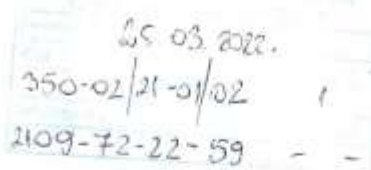 25 03. 2022.
350-02/21-01/02 1
2109-72-22-59 - -